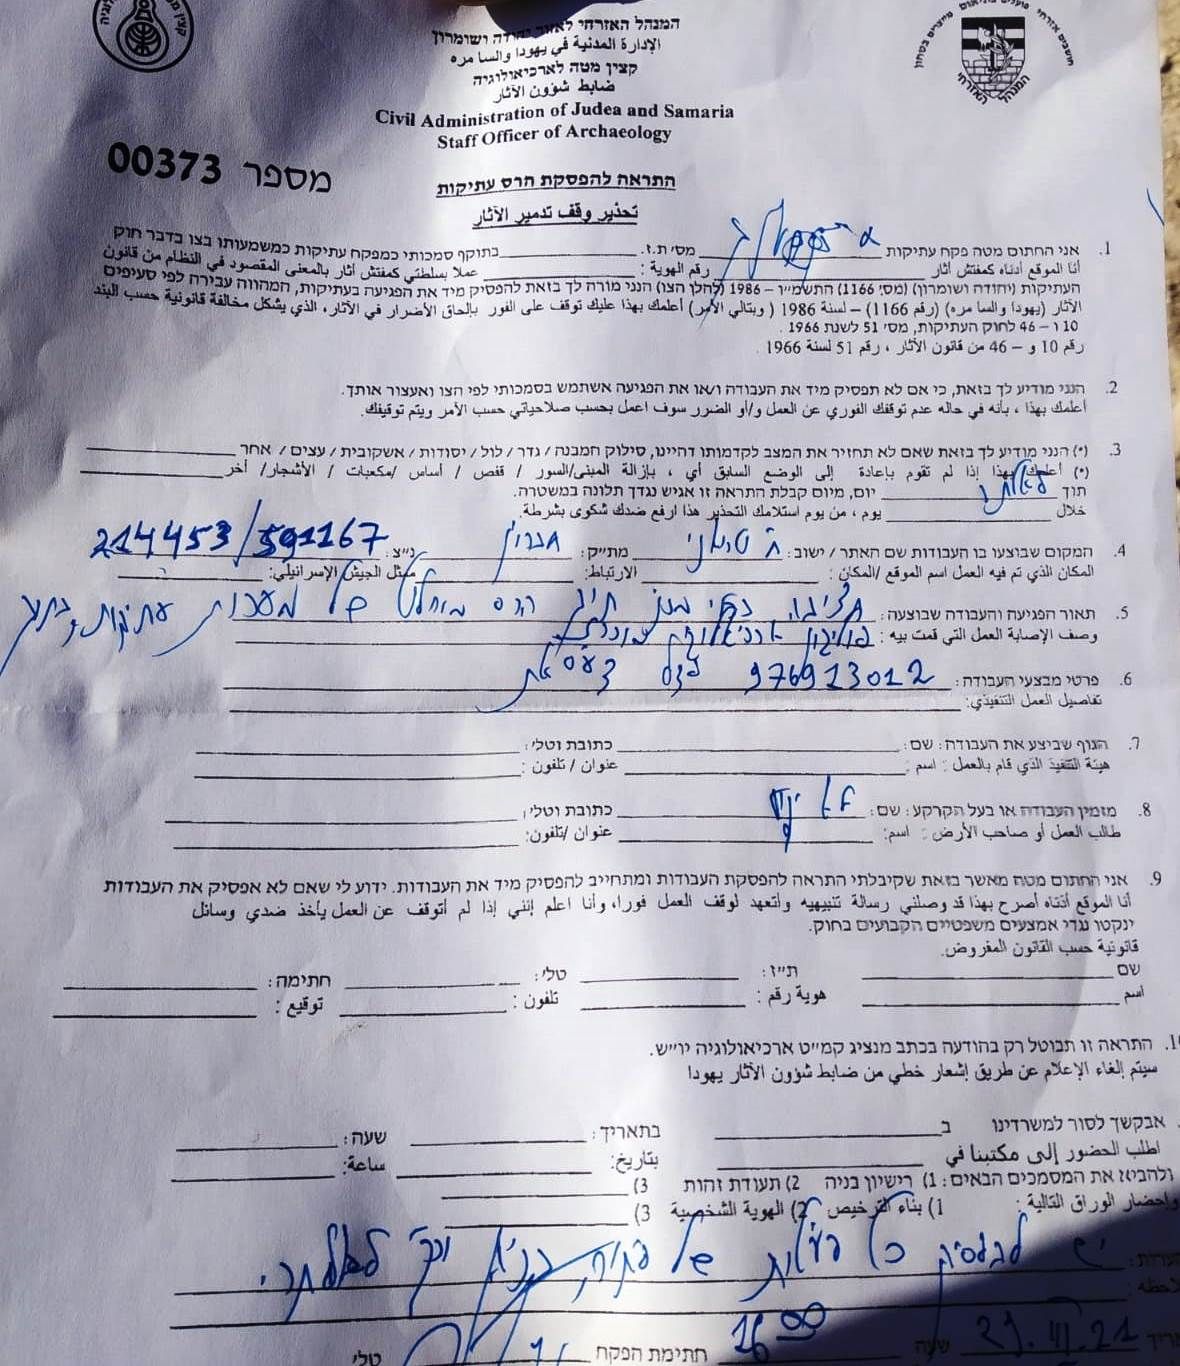 המנהל האזרחי לאזור יהודה ושומרון
الإدارة المدنية في يهودا والسا مره
קצין מטה לארכיאולוגיה
ضابط شؤون الآثار
Civil Administration of Judea and Samaria
Staff Officer of Archaeology
מספר 00373
התראה להפסקת הרס עתיקות
تحذير وقف تدمير الآثار
1. אני החתום מטה פקח עתיקות מס׳ ת.ז. בתוקף סמכותי כמפקח עתיקות כמשמעותו בצו בדבר חוק
أنا الموقع أدناه كمفتش آثار رقم الهوية : عملا بسلطتي كمفتش آثار بالمعنى المقصود في النظام من قانون
העתיקות (יהודה ושומרון) (מס׳ 1166) התשמ״ו – 1986 (להלן הצו) הנני מורה לך בזאת להפסיק מיד את הפגיעה בעתיקות, המהווה עבירה לפי סעיפים
الآثار (يهودا والسا مره) (رقم 1166) – لسنة 1986 ( وبتالي الأمر) أعلمك بهذا عليك توقف على الفور بإلحاق الأضرار في الآثار، الذي يشكل مخالفة قانونية حسب البند
10 ו – 46 לחוק העתיקות, מס׳ 51 לשנת 1966 .
رقم 10 و – 46 من قانون الآثار ، رقم 51 لسنة 1966 .
2. הנני מודיע לך בזאת, כי אם לא תפסיק מיד את העבודה ו/או את הפגיעה אשתמש בסמכותי לפי הצו ואעצור אותך.
أعلمك بهذا ، بأنه في حاله عدم توقفك الفوري عن العمل و/أو الضرر سوف اعمل بحسب صلاحياتي حسب الأمر ويتم توقيفك.
3. (*) הנני מודיע לך בזאת שאם לא תחזיר את המצב לקדמותו דהיינו, סילוק המבנה / גדר / לול / יסודות / אשקובית / עצים / אחר
(*) أعلمك بهذا إذا لم تقوم بإعادة إلى الوضع السابق أي ، بإزالة المبنى/السور / قفص / أساس /مكعبات / الأشجار/ أخر
תוך לאלתר יום, מיום קבלת התראה זו אגיש נגדך תלונה במשטרה.
خلال يوم ، من يوم استلامك التحذير هذا ارفع ضدك شكوى بشرطة.
4. המקום שבוצעו בו העבודות שם האתר / ישוב : מת״ק : חברון נ״צ : 214453/591167
المكان الذي تم فيه العمل اسم الموقع /المكان : الارتباط: ممثل الجيش الإسرائيلي:
5. תאור הפגיעה והעבודה שבוצעה : חציבה הרס מוחלט של מערכות עתיקות
وصف الإصابة العمل التي قمت بيه :
6. פרטי מבצעי העבודה : 976913012
تفاصيل العمل التنفيذي:
7. הגוף שביצע את העבודה : שם : כתובת וטלי :
هيئة التنفيذ الذي قام بالعمل : اسم : عنوان / تلفون :
8. מזמין העבודה או בעל הקרקע : שם : לא ידוע כתובת וטלי :
طالب العمل أو صاحب الأرض : اسم: عنوان /تلفون:
9. אני החתום מטה מאשר בזאת שקיבלתי התראה להפסקת העבודות ומתחייב להפסיק מיד את העבודות. ידוע לי שאם לא אפסיק את העבודות
أنا الموقع أدناه أصرح بهذا قد وصلني رسالة تنبيهيه وأتعهد لوقف العمل فورا، وأنا اعلم إنني إذا لم أتوقف عن العمل يأخذ ضدي وسائل
ינקטו נגדי אמצעים משפטיים הקבועים בחוק.
قانونية حسب القانون المفروض.
שם ת״ז : טלי : חתימה :
اسم هوية رقم : تلفون : توقيع :
התראה זו תבוטל רק בהודעה בכתב מנציג קמ״ט ארכיאולוגיה יו״ש.
سيتم إلغاء الإعلام عن طريق إشعار خطي من ضابط شؤون الآثار يهودا
אבקשך לסור למשרדינו ב בתאריך : שעה :
اطلب الحضور إلى مكتبنا في بتاريخ: ساعة:
ולהביא את המסמכים הבאים : 1) רישיון בניה 2) תעודת זהות 3)
وإحضار الوراق التالية : 1) بناء الترخيص 2) الهوية الشخصية 3)
יש להפסיק כל פעולות של
שעה 16 00 חתימת הפקח טלי